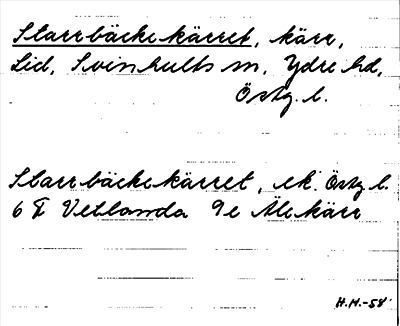 Starrbäckekärret, kärr,
Lid, Svinhults sn, Ydre hd,
Östg. l.
Starrbäckekärret, ek. Östg l.
6 F Vetlanda 9e Älekärr
H.H.-58